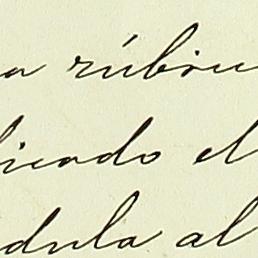 a rúbric
licado el
dula al